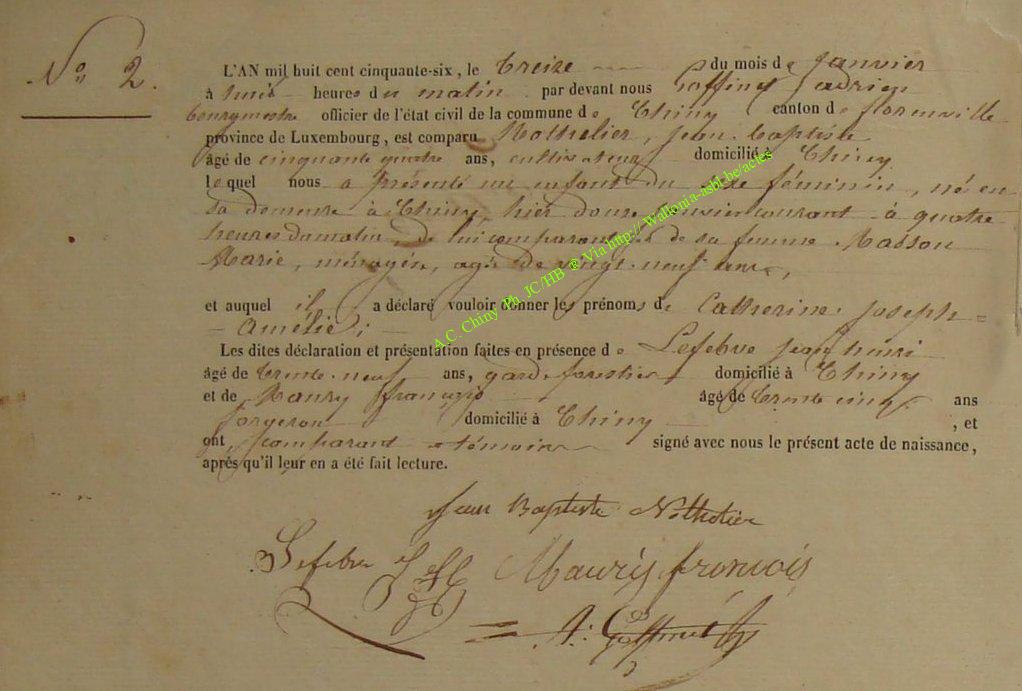 N° 2.
L'AN mil huit cent cinquante-six, le treize du mois de Janvier
à heures du matin par devant nous Goffinet Adrien
bourgmestre officier de l'état civil de la commune de Chiny canton de florenville
province de Luxembourg, est comparu Nothelier, Jean-baptiste
âgé de cinquante quatre ans, cultivateur domicilié à Chiny
lequel nous a présenté un enfant du sexe féminin, né en
sa demeure à Chiny, hier douze courant à quatre
heures du matin, de lui comparant et de sa femme Masson
Marie, ménagère, agée de vingt-neuf ans,
et auquel il a déclaré vouloir donner les prénoms de Catherine Joseph=
Amélie;
Les dites déclaration et présentation faites en présence de Lefebve Jean henri
âgé de trente-neuf ans, garde forestier domicilié à Chiny
et de Maury françois âgé de trente cinq ans
forgeron domicilié à Chiny , et
ont comparant et témoins signé avec nous le présent acte de naissance,
après qu'il leur en a été fait lecture.
Jean Baptiste Nothelier
Lefebve J H Maury françois
A: Goffinet
A.C. Chiny Ph. JC/HB ® Via http://Wallonia-asbl.be/actes